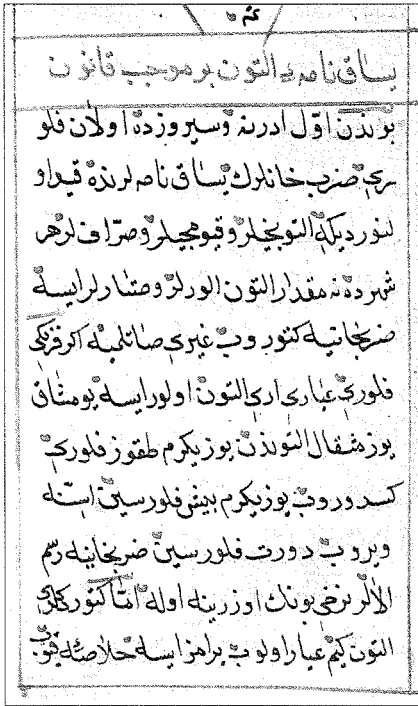 یساق نامهٔ التون بر موجب قانون
بوندن اوّل ادرنه و سیروزده اولان فلو
ری ضرب خانلرك یساق نامه لرنده قید او
لنور دیکه التونجیلر و قیومجیلر و صرّافلر هر
شهرده نه مقدار التون الورلر و صتارلر ایسه
ضربخانیه کتوروب غیری صاتلمیه اکر فرنکی
فلوری عیاری اری التون اولور ایسه بو مثاق
یوز مثقال التوندن یوز یکرم طقوز فلوری
کسدوروب یوز یکرم بیش فلورسین اسنه
ویروب دورت فلورسین ضربخانیه رسم
الالر نرخی بونك اوزرینه اوله امّا کتوردکلری
التون کم عیار اولوب یرامز ایسه خلاصه قیوب